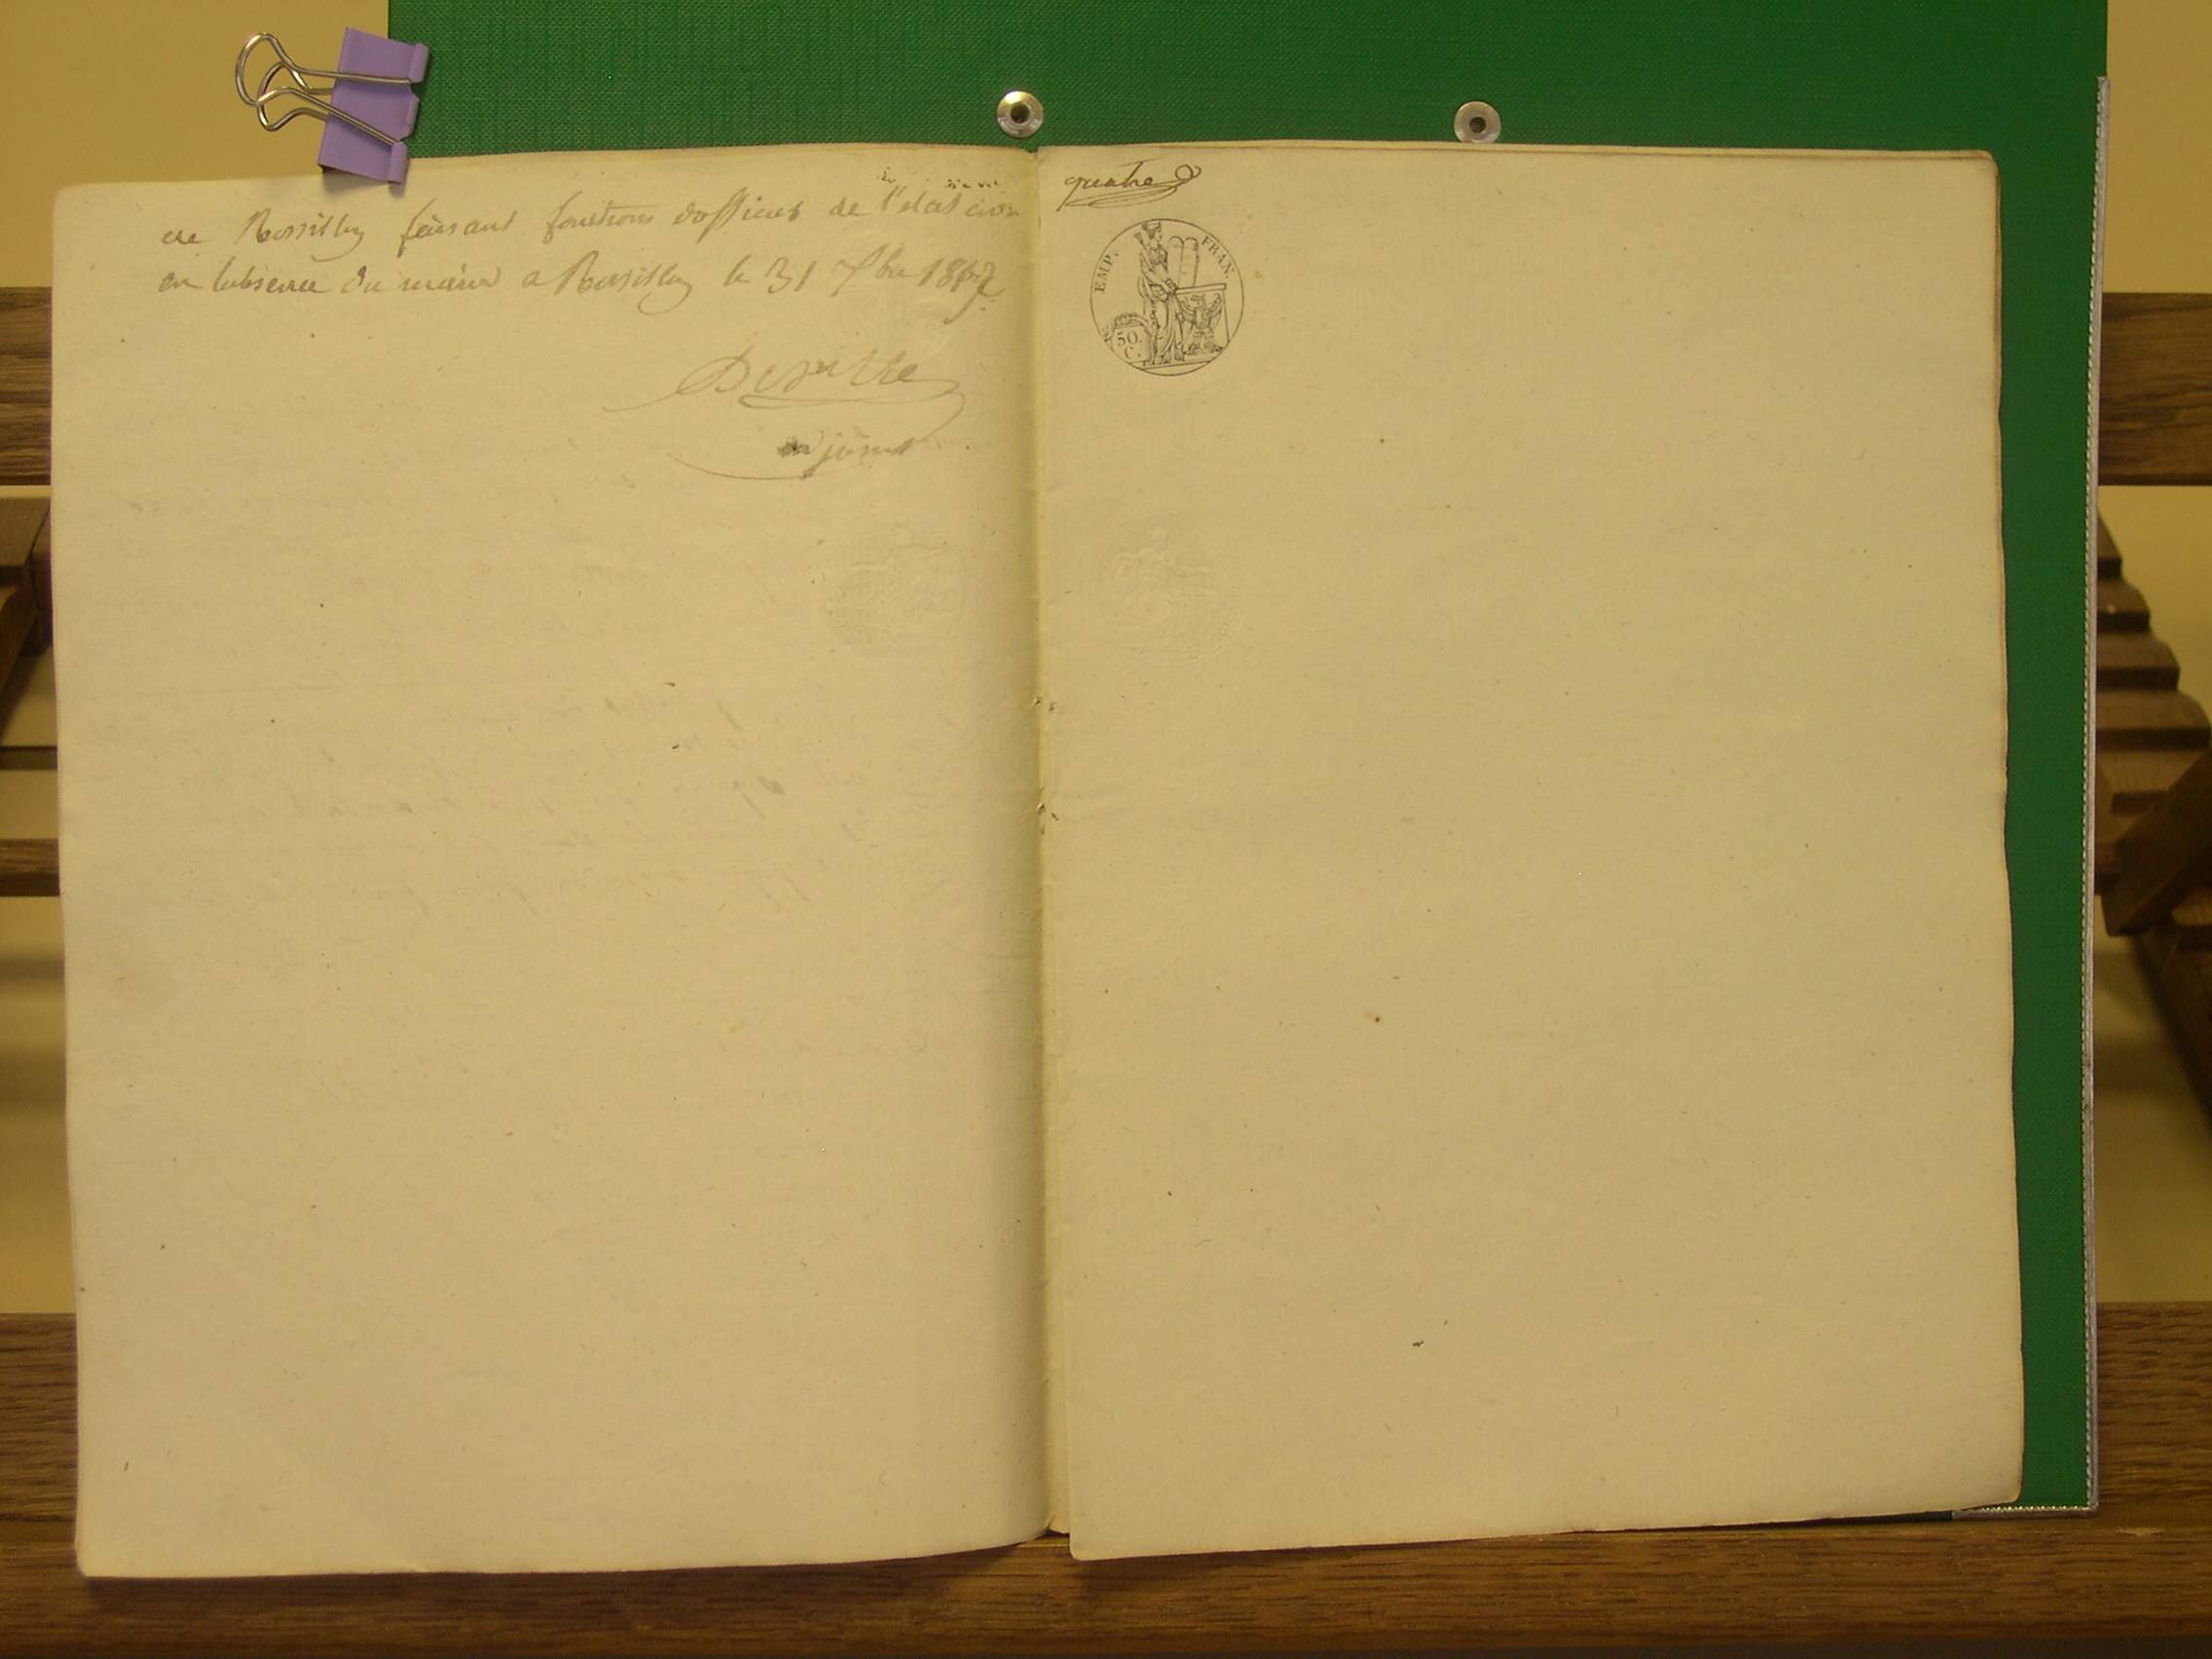 de Rossilly faisant fonctions d'officier de l'état civil
en l'absence du maire a Rossilly le 31 Xbre 1862
Deville
adjoint
quatre
EMP. FRAN.
50
C.